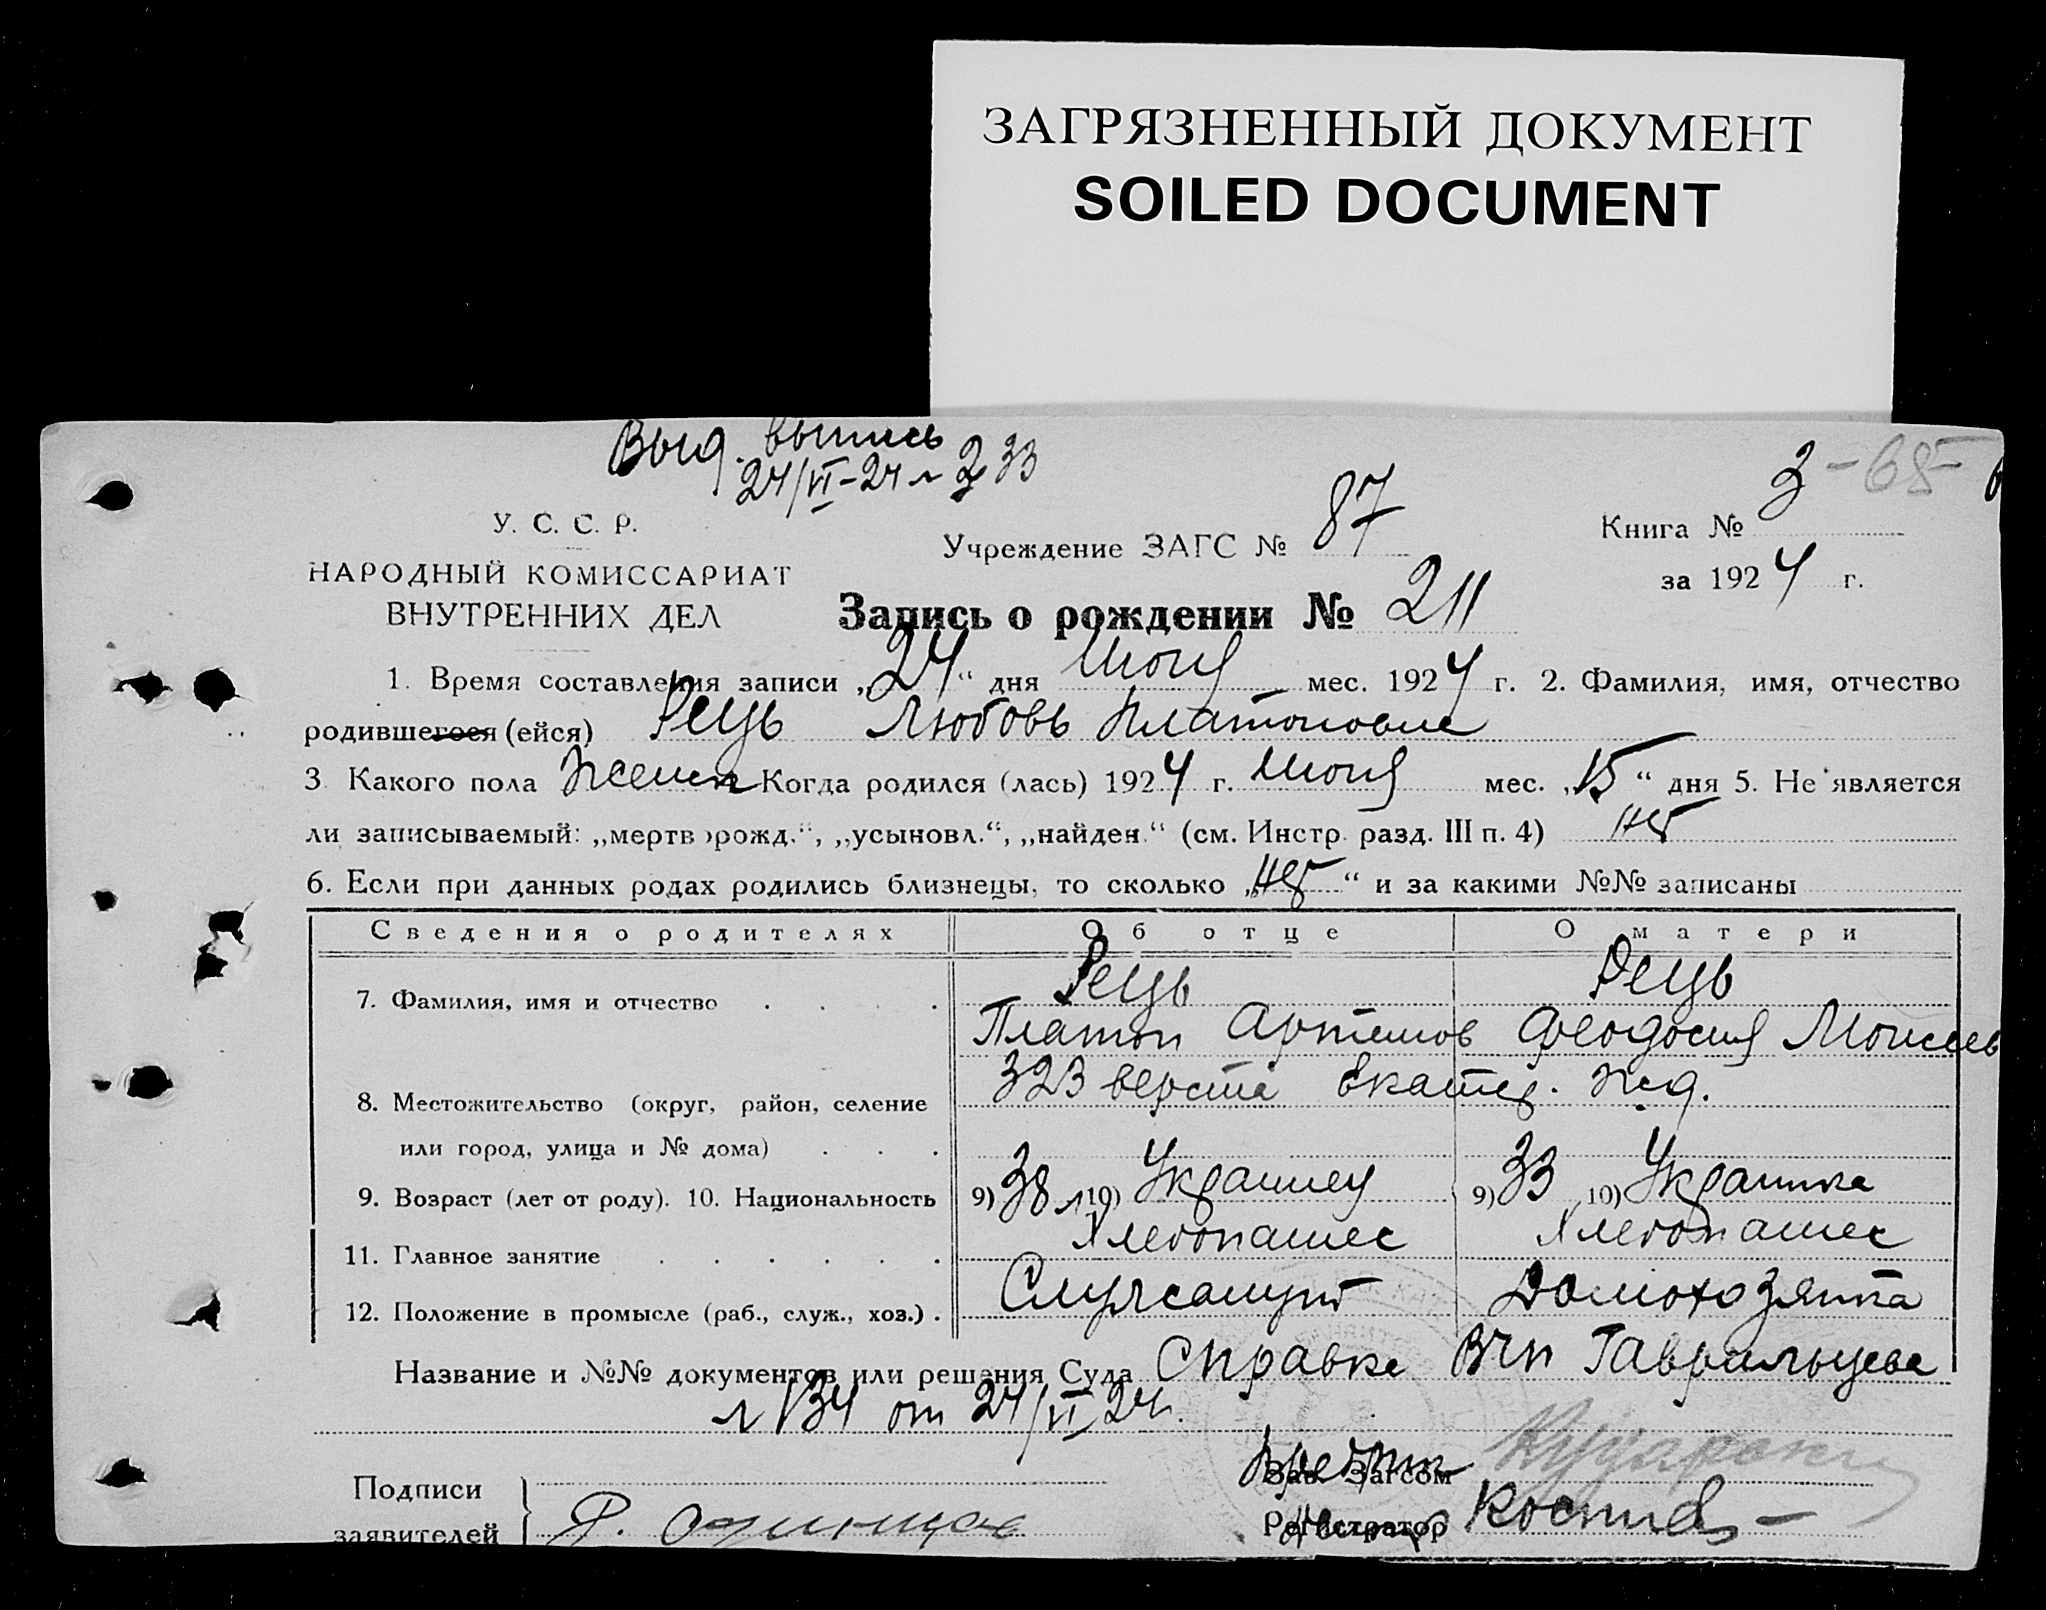 ЗАГРЯЗНЕННЫЙ ДОКУМЕНТ
SOILED DOCUMENT
Выд. выпись
24/VI-24 № 233
3 - 68
У. С. С. Р.
НАРОДНЫЙ КОМИССАРИАТ
ВНУТРЕННИХ ДЕЛ
Учреждение ЗАГС № 87
Книга № 3
за 1924 г.
Запись о рождении № 211
1. Время составления записи „24“ дня Июня мес. 1924 г. 2. Фамилия, имя, отчество
родившегося (ейся) Рець Любовь Платоновна
3 Какого пола Женск Когда родился (лась) 1924 г. Июня мес. „15“ дня 5. Не является
ли записываемый: „мертворожд.“, „усыновл.“, „найден.“ (см. Инстр. разд. III п. 4) нет
6. Если при данных родах родились близнецы, то сколько „нет“ и за какими №№ записаны
Сведения о родителях Об отце О матери
7. Фамилия, имя и отчество Рець Рець
Платон Артемов Феодосия Моисеев
323 верста Екатер. жд.
8. Местожительство (округ, район, селение
или город, улица и № дома)
9. Возраст (лет от роду). 10. Национальность 9) 38 л 10) Украинец 9) 33 10) Украинка
11. Главное занятие Хлебопашес Хлебопашес
12. Положение в промысле (раб., служ., хоз.) Служащий Домохозяйка
Название и №№ документов или решения Суда Справка ВЧп Гавриловцева
№ 134 от 24/VI 24г.
Подписи
заявителей
Зав. Загсом
Регистратор